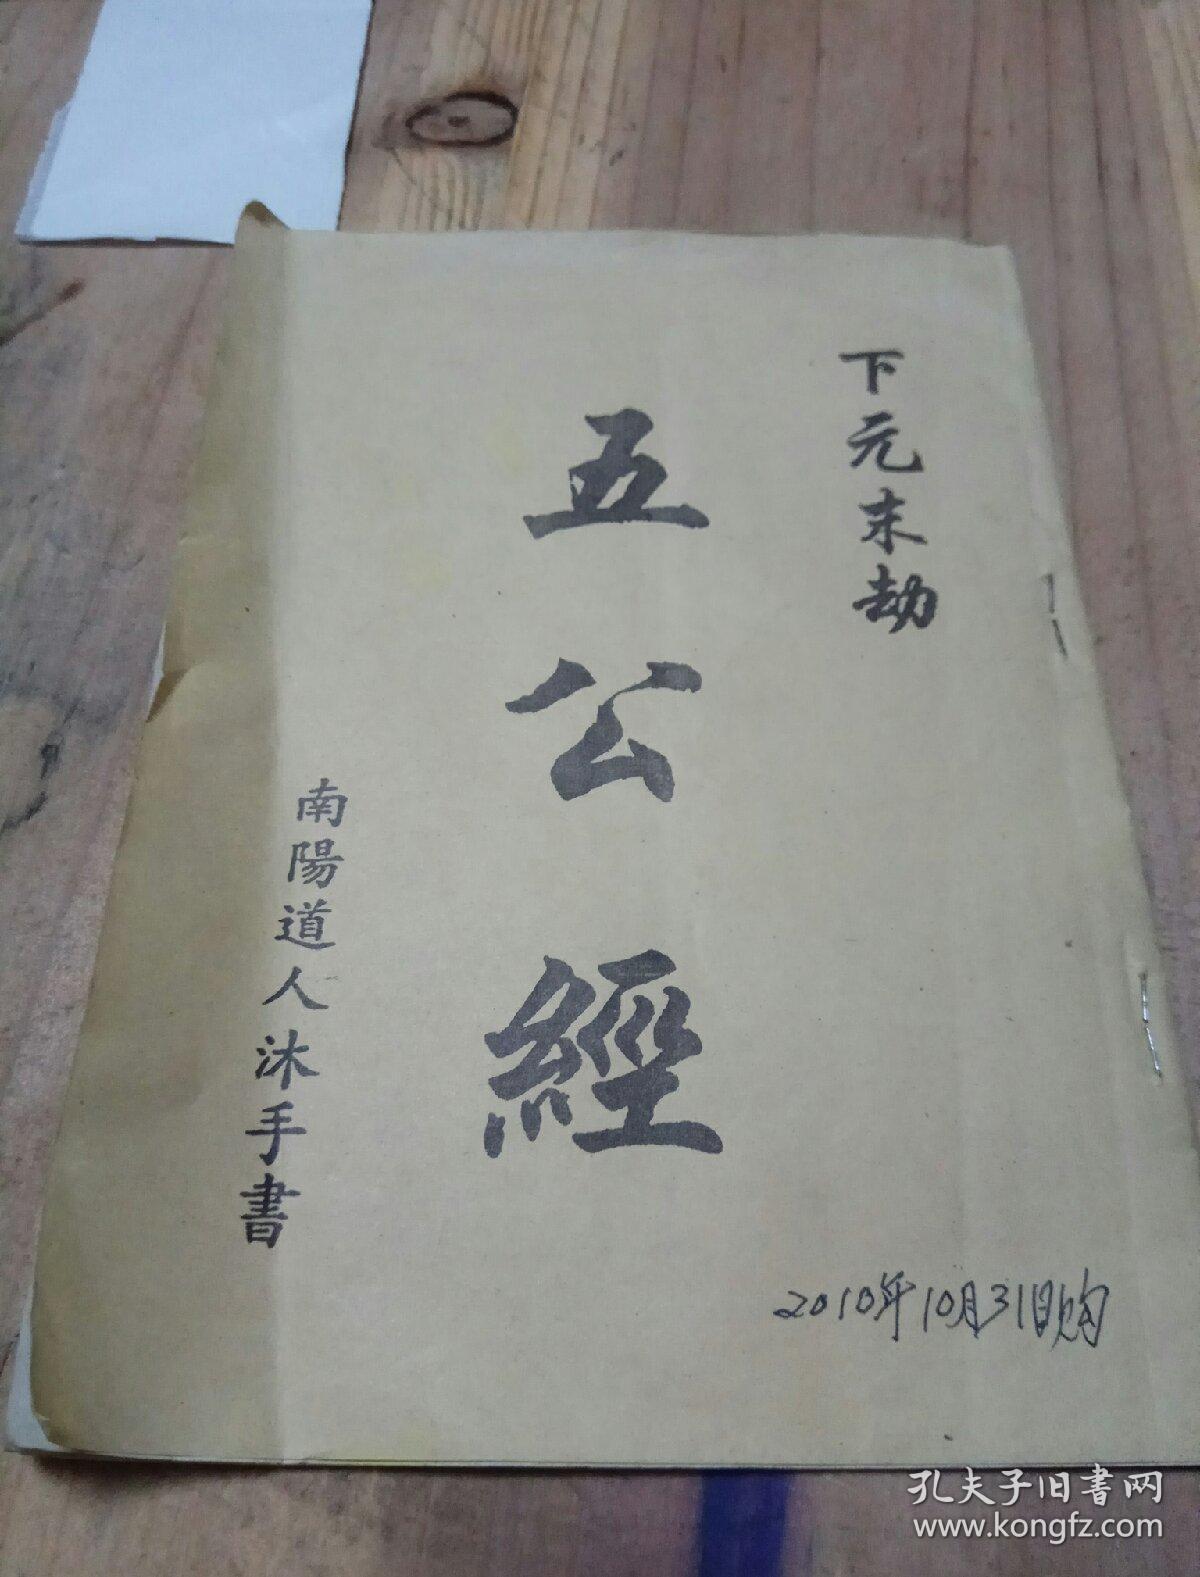 下元末劫
五公經
南陽道人沐手書
2010年10月31日购
孔夫子旧書网
www.kongfz.com